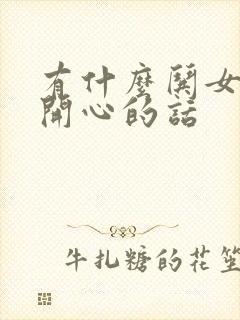 有什麼鬨女
開心的話
牛扎糖的花笙